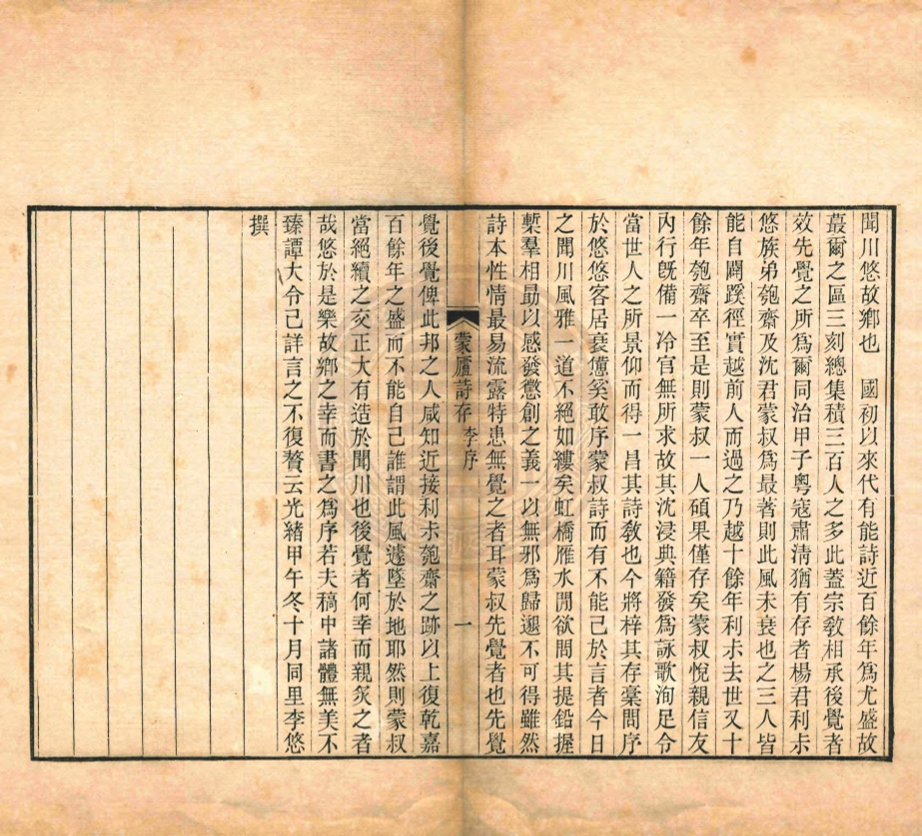 聞川悠故鄉也　國初以來代有能詩近百餘年爲尤盛故
蕞爾之區三刻總集積三百人之多此蓋宗敎相承後覺者
效先覺之所爲爾同治甲子粵寇肅淸猶有存者楊君利尗
悠族弟匏齋及沈君蒙叔爲最著則此風未衰也之三人皆
能自闢蹊徑實越前人而過之乃越十餘年利尗去世又十
餘年匏齋卒至是則蒙叔一人碩果僅存矣蒙叔悅親信友
內行旣備一冷官無所求故其沈浸典籍發爲詠歌洵足令
當世人之所景仰而得一昌其詩敎也今將梓其存稾問序
於悠悠客居衰憊奚敢序蒙叔詩而有不能已於言者今日
之聞川風雅一道不絕如縷矣虹橋雁水閒欲問其提鉛握
槧羣相勗以感發懲創之義一以無邪爲歸邈不可得雖然
詩本性情最易流露特患無覺之者耳蒙叔先覺者也先覺
蒙廬詩存 李序 一
覺後覺俾此邦之人咸知近接利尗匏齋之跡以上復乾嘉
百餘年之盛而不能自已誰謂此風遽墜於地耶然則蒙叔
當絕續之交正大有造於聞川也後覺者何幸而親炙之者
哉悠於是樂故鄉之幸而書之爲序若夫稿中諸體無美不
臻譚大令已詳言之不復贅云光緖甲午冬十月同里李悠
撰